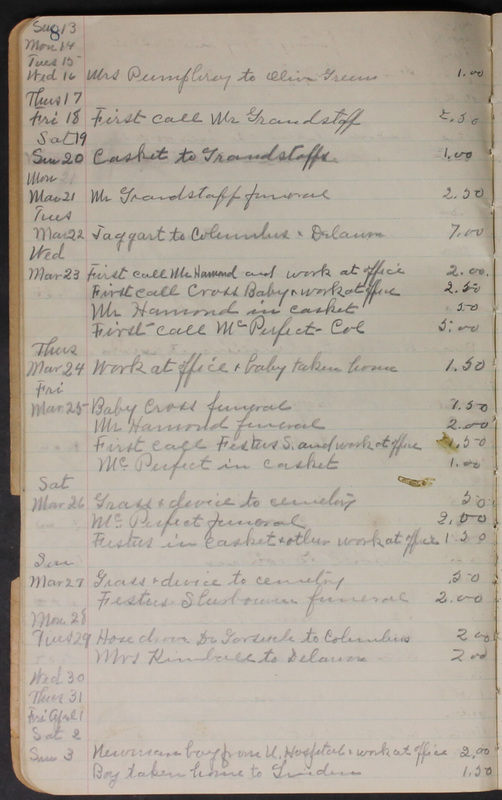 Sun 13
8
Mon 14
Tues 15
Wed 16 Mrs Pumphrey to Olive Green 1.00
Thurs 17
Fri 18 First call Mr Grandstaff 2.50
Sat 19
Sun 20 Casket to Grandstaffs 1.00
Mon 21
Mar 21 Mr Grandstaff funeral 2.50
Tues
Mar 22 Taggart to Columbus + Delaware 7.00
Wed
Mar 23 First call Mr Hammond and work at office 2.00
First call Cross Baby + work at office 2.50
Mr Hamond in casket 50
First call McPerfect - Col 5.00
Thurs
Mar 24 Work at office + baby taken home 1.50
Fri
Mar 25 Baby Cross funeral 1.50
Mr Hamond funeral 2.00
First call Festus S. and work at office .50
Mc Perfect in casket 1.00
Sat
Mar 26 Grass + device to cemetery 50
Mc Perfect funeral 2.00
Festus in casket + other work at office 1 50
Sun
Mar 27 Grass + device to cemetery 50
Festus funeral 2.00
Mon 28
Tues 29 Hose drove Dr to Columbus 2 00
Mrs Kimball to Delaware 2 00
Wed 30
Thur 31
Fri April 1
Sat 2
Sun 3 Newman boy from U. Hospital + work at office 2.00
Boy taken home to Linden 1.50